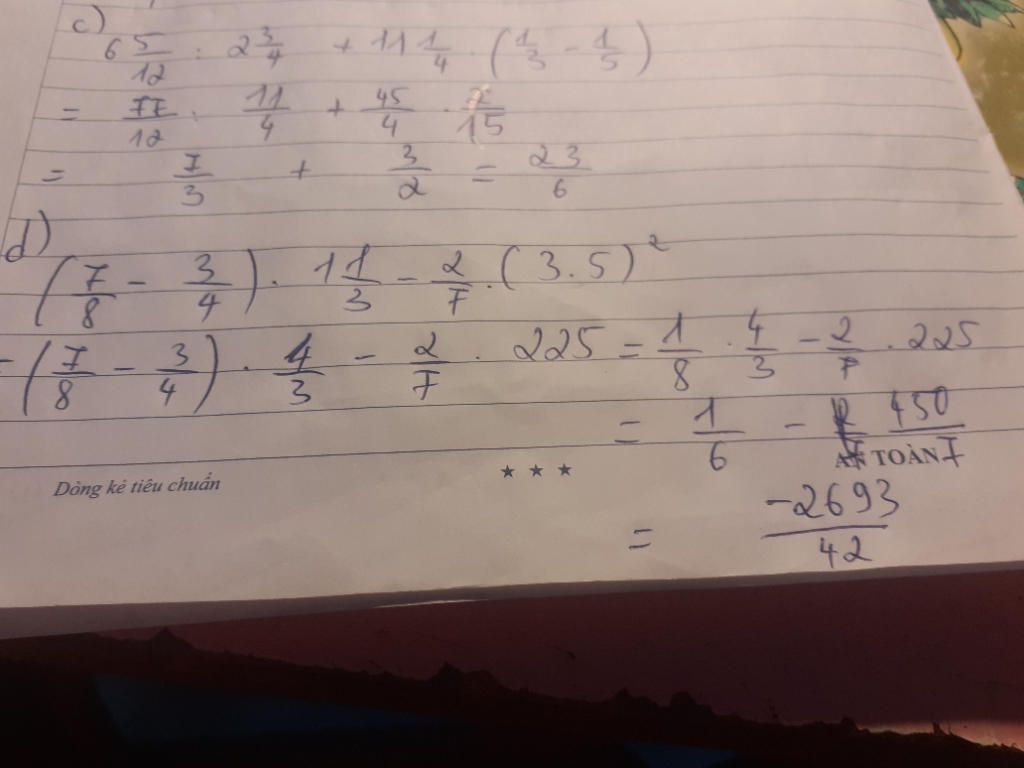 c)
6 5/12 : 2 3/4 + 11 1/4 . (1/3 - 1/5)
= 77/12 : 11/4 + 45/4 . 2/15
= 7/3 + 3/2 = 23/6
d)
(7/8 - 3/4) . 1 1/3 - 2/7 . (3.5)²
= (7/8 - 3/4) . 4/3 - 2/7 . 225 = 1/8 . 4/3 - 2/7 . 225
= 1/6 - 450/7
AN TOÀN
Dòng kẻ tiêu chuẩn ★ ★ ★
= -2693/42